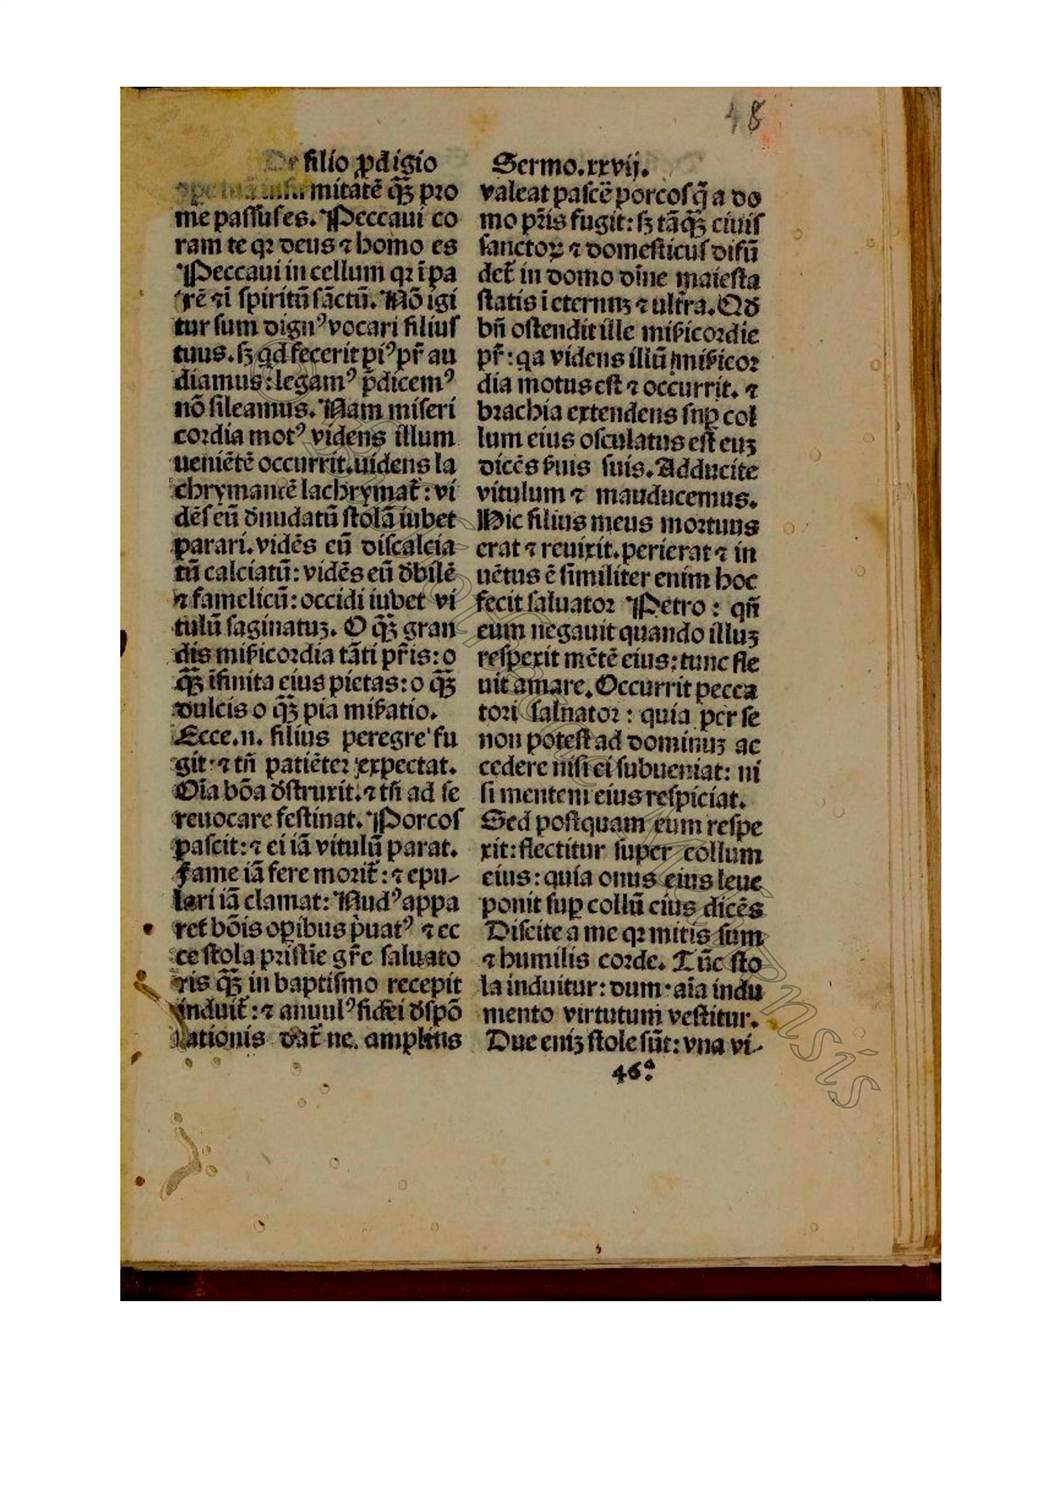 48
De filio ꝓdigio Sermo.xxvij.
mitatē qȝ̄ pro
me paſſuſ es. Peccaui co
ram te qꝛ deus ⁊ homo es
Peccaui in cellum qꝛ ī pa
rē ⁊ī ſpiritū ſāctū. Nō igi
tur ſum dignꝰ vocari filiuſ
tuus. ſȝ qd fecerit piꝰ pr̄ au
diamus: legamꝰ p̄dicemꝰ
nō ſileamus. Nam miſeri
cordia motꝰ videns illum
ueniētē occurrit. uidens la
chrymantē lachrymat̄: vi
dēſ eū ꝺnudatū ſtolā iubet
parari. vidēs eū diſcalcia
tū calciatū: vidēs eū ꝺbilē
⁊ famelicū: occidi iubet vi
tulū ſaginatuȝ. O qȝ̄ gran
dis miẜicordia tāti pr̄is: o
qȝ̄ īfinita eius pietas: o qȝ̄
dulcis o qȝ̄ pia miẜatio.
Ecce. n. filius peregre fu
git: ⁊ tn̄ patiēter expectat.
Oīa bōa ꝺſtruxit. ⁊ tn̄ ad ſe
reuocare feſtinat. Porcoſ
paſcit: ⁊ ei iā vitulū parat.
Fame iā fere morit̄: ⁊ epu-
lari iā clamat: Nudꝰ appa
ret bōis oꝑibus p̄uatꝰ ⁊ ec
ce ſtola priſtīe gr̄e ſaluato
ris qȝ̄ in baptiſmo recepit
induit̄: ⁊ anuulꝰ fidei ꝺſpō
ſationis dat̄ ne. amplius
valeat paſcē porcoſ q̄ a do
mo pr̄is fugit: ſȝ tāqȝ̄ ciuiſ
ſanctoꝝ ⁊ domeſticuſ diſū
det̄ in domo dīne maieſta
ſtatis ī eternuȝ ⁊ ultr̄a. Qꝺ
bn̄ oſtendit ille miẜicordie
pr̄: qa videns illū miẜicor
dia motus eſt ⁊ occurrit. ⁊
brachia extendens ſuꝑ col
lum eius oſculatus eſt euȝ
dicēs ẜuis ſuis. Adducite
vitulum ⁊ mauducemus.
Hic filius meus mortuus
erat ⁊ reuixit. perierat ⁊ in
uētus ē ſimiliter enim hoc
fecit ſaluator Petro: qn̄
eum negauit quando illuȝ
reſpexit mētē eius: tunc fle
uit amare. Occurrit pecca
tori ſaluator: quia per ſe
non poteſt ad dominuȝ ac
cedere niſi ei ſubueniat: ni
ſi mentem eius reſpiciat.
Sed poſtquam eum reſpe
xit: flectitur ſuper collum
eius: quia onus eius leue
ponit ſuꝑ collū eius dicēs
Diſcite a me qꝛ mitis ſum
⁊ humilis corde. Tūc ſto
la induitur: dum aīa indu
mento virtutum veſtitur.
Due eniȝ ſtole ſūt: vna vi-
46ª.